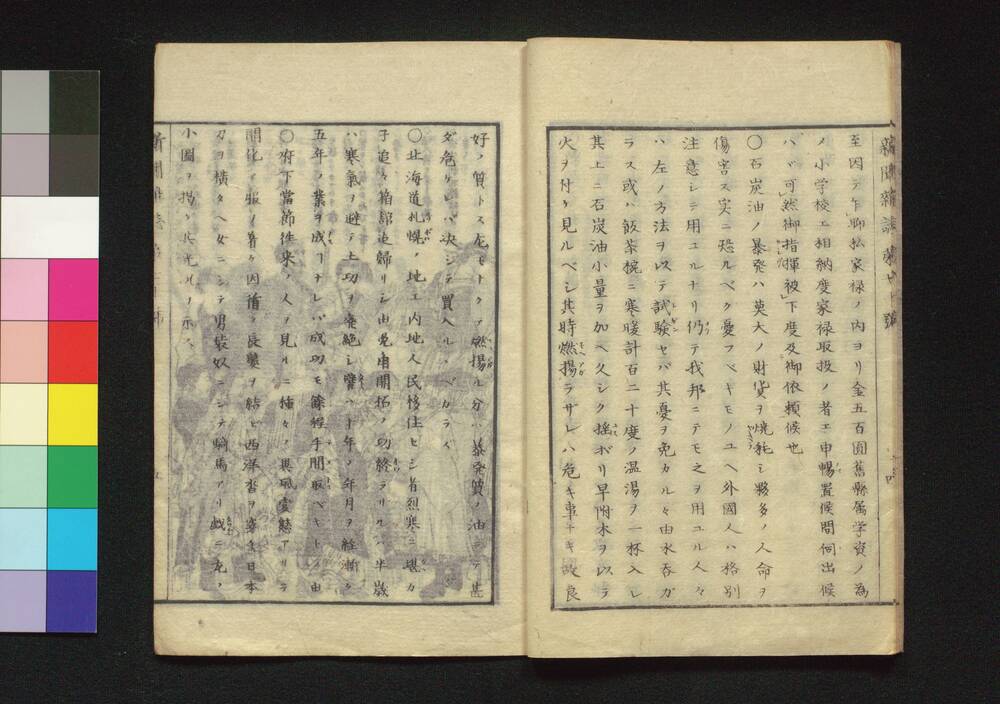 至因テ乍聊私家禄ノ内ヨリ金五百圓舊縣属学資ノ為
ノ小学校エ相納度家禄取扱ノ者エ申暢置候間何出候
ハヾ可然御指揮被下度及御依頼候也
〇石炭油ノ暴発ハ莫大ノ財貨ヲ焼耗シ夥多ノ人命ヲ
傷害ス実ニ恐ルベク憂フベキモノユヘ外國人ハ格別
注意シテ用ユルナリ仍テ我邦ニテモ之ヲ用ユル人々
ハ左ノ方法ヲ以テ試験セバ其憂ヲ免カル々由水呑ガ
ラス或ハ飯茶椀ニ寒暖計百二十度ノ温湯ヲ一杯入レ
其上ニ石炭油小量ヲ加ヘ久シク揺ボリ早附木ヲ以テ
火ヲ付ケ見ルベシ其時燃揚ラザレハ危キ事ナキ故良
好ノ質トス尤モトクア燃揚ル分ハ暴発質ノ油ニテ甚
ダ危ケレバ決シテ買入ルヽベカラズ
〇北海道札幌ノ地エ内地人民移住セシ者烈寒ニ堪カ
子追々箱館迄帰リシ由兎角開拓ノ功終ラリケン半歳
ハ寒氣ヲ避テ土功ヲ廃絶シ譬ヘ十年ノ年月ヲ経漸ク
五年ノ業ヲ成ナレバ成功モ餘程手間取ベキトノ由
〇府下當節往来ノ人ヲ見ルニ種々ノ異風変態アリテ
開化ノ服ヲ着ケ因循ノ長髪ヲ結ビ西洋沓ヲ穿チ日本
刀ヲ横タヘ女ニシテ男装奴ニシテ騎馬アリ戯ニ尤ノ
小圖ヲ掲ケ其光景ヲ示ス